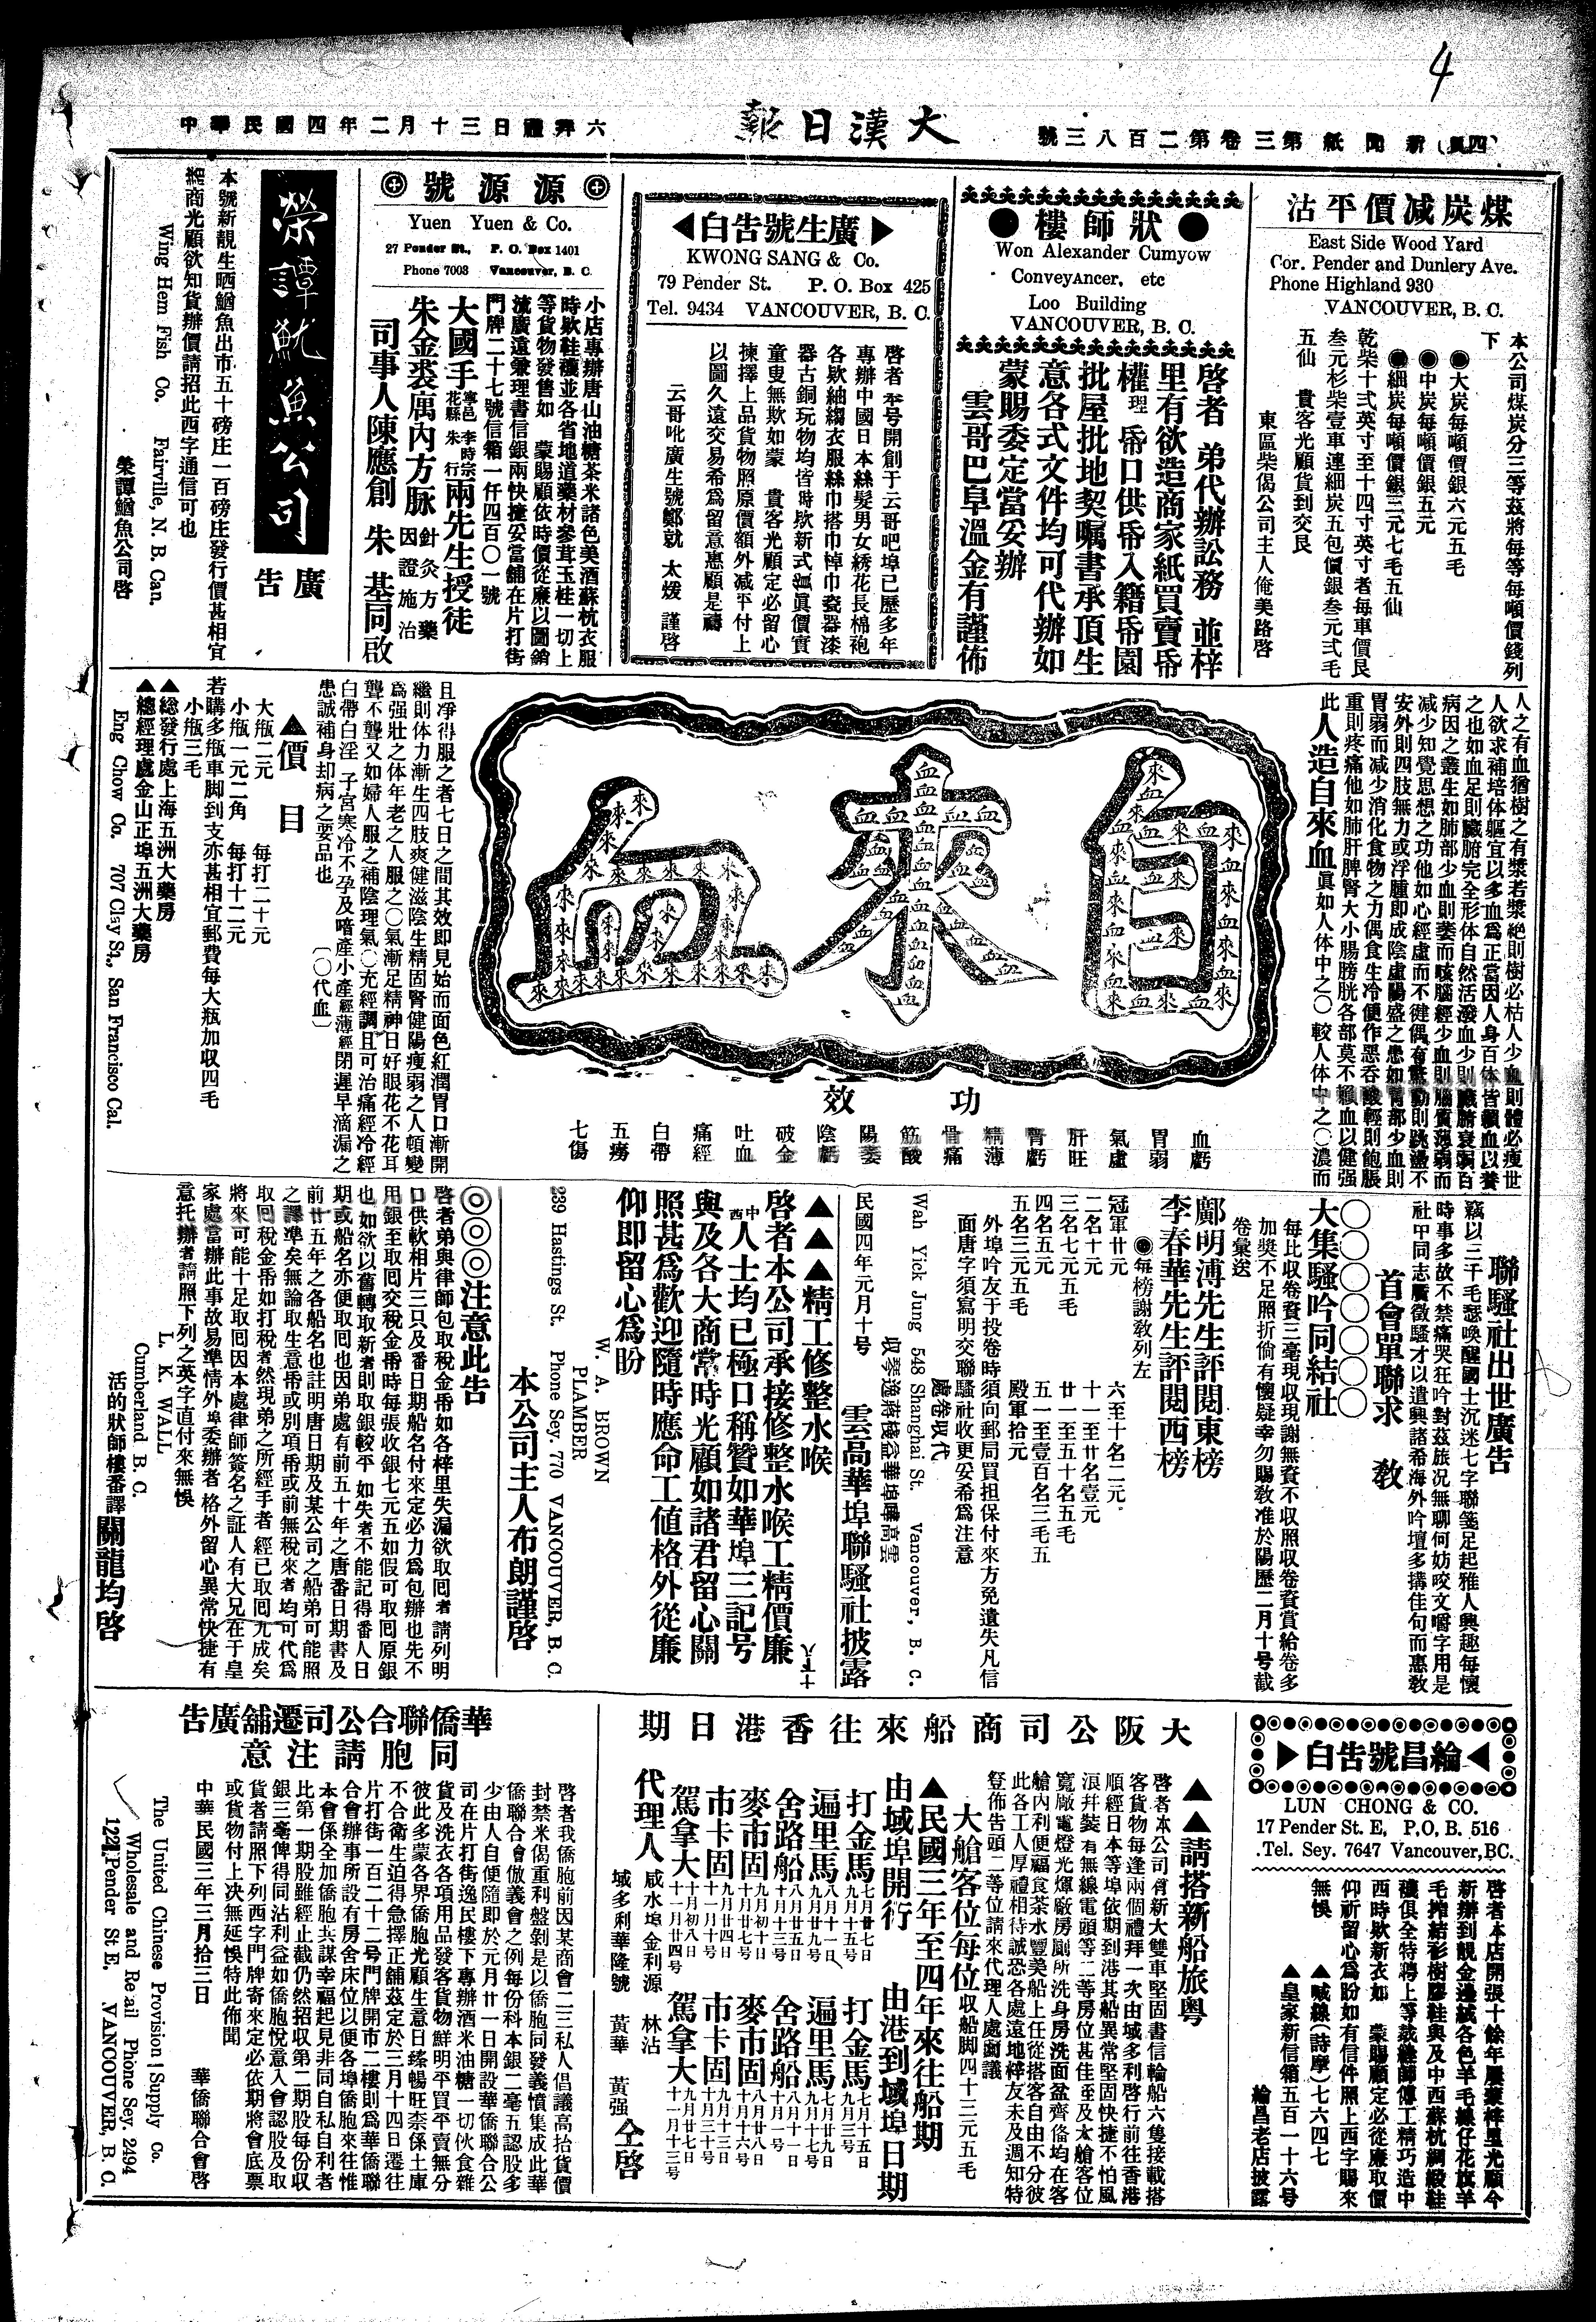 4
大漢日報
（四頁）新聞紙第三卷第二百八三號
中華民國四年二月十三日禮拜六
煤炭减價平沽
East Side Wood Yard
Cor. Pender and Dunlery Ave.
Phone Highland 930
VANCOUVER, B. C.
本公司煤炭分三等茲將每等每噸價錢列
下
●大炭每噸價銀六元五毛
●中炭每噸價銀五元
●細炭每噸價銀三元七毛五仙
乾柴十弍英寸至十四寸英寸者每車價艮
叁元杉柴壹車連細炭五包價銀叁元弍毛
五仙　貴客光顧貨到交艮
東區柴偈公司主人俺美路啓
●狀師樓●
Won Alexander Cumyow
Conveyancer, etc
Loo Building
VANCOUVER, B. C.
啓者　弟代辦訟務　並梓
里有欲造商家紙買賣帋
權理　帋口供帋入籍帋園
批屋批地契嘱書承頂生
意各式文件均可代辦如
蒙賜委定當妥辦
雲哥巴阜溫金有謹佈
廣生號告白
KWONG SANG & Co.
79 Pender St. P. O. Box 425
Tel. 9434 VANCOUVER, B. C.
啓者本号開創于云哥吧埠已歷多年
專辦中國日本絲髮男女綉花長棉袍
各欵紬縐衣服絲巾搭巾棹巾瓷器漆
器古銅玩物均皆時欵新式貨眞價實
童叟無欺如蒙　貴客光顧定必留心
揀擇上品貨物照原價額外减平付上
以圖久遠交易希爲留意惠顧是禱
云哥吡廣生號鄭就　太煖　謹啓
源源號
Yuen Yuen & Co.
27 Pender St., P. O. Box 1401
Phone 7003 Vancouver, B. C.
小店專辦唐山油糖茶米諸色美酒蘇杭衣服
時欵鞋襪並各省地道藥材參茸玉桂一切上
等貨物發售如　蒙賜顧依時價從廉以圖銷
流廣遠兼理書信銀兩快捷妥當舖在片打街
門牌二十七號信箱一仟四百〇一號
大國手寧邑　李時宗　花縣　朱　行兩先生授徒
朱金裘厲內方脉　針灸方藥　因證施治
司事人陳應創　朱　基同啟
榮譚魷魚公司
廣告
本號新靚生晒鰌魚出市五十磅庄一百磅庄發行價甚相宜
經商光顧欲知貨辦價請招此西字通信可也
Wing Hem Fish Co. Fairville, N. B. Can.
榮譚鰌魚公司啓
人之有血猶樹之有漿若漿絶則樹必枯人少血則體必瘦世
人欲求補培体軀宜以多血爲正當因人身百体皆賴血以養
之也如血足則臟腑完全形体自然活潑血少則臟腑衰弱百
病因之叢生如肺部少血則萎而咳腦經少血則腦質薄弱而
减少知覺思想之功他如心經虛而不健偶有驚動則跳盪不
安外則四肢無力或浮腫即成陰虛陽盛之患如胃部少血則
胃弱而减少消化食物之力偶食生冷便作悪吞酸輕則飽脹
重則疼痛他如肺肝脾腎大小腸膀胱各部莫不賴血以健强
此人造自來血眞如人体中之〇較人体中之〇濃而
自來血
功效
血虧
胃弱
氣虛
肝旺
腎虧
精薄
骨痛
筋酸
陽萎
陰虧
破金
吐血
痛經
白帶
五痨
七傷
且凈得服之者七日之間其效即見始而面色紅潤胃口漸開
繼則体力漸生四肢爽健滋陰生精固腎健陽瘦弱之人頓變
爲强壯之体年老之人服之〇氣漸足精神日好眼花不花耳
聾不聾又如婦人服之補陰理氣〇充經調且可治痛經冷經
白帶白淫　子宮寒冷不孕及暗產小產經薄經閉遲早滴漏之
患誠補身却病之要品也　（〇代血）
▲價目
大瓶二元　每打二十元
小瓶一元二角　每打十二元
若購多瓶車脚到支亦甚相宜郵費每大瓶加収四毛
小瓶三毛
▲総發行處上海五洲大藥房
▲總經理處金山正埠五洲大藥房
Eng Chow Co. 707 Clay St., San Francisco Cal.
聯騷社出世廣告
竊以三千毛瑟喚醒國士沉迷七字聯箋足起雅人興趣每懷
時事多故不禁痛哭狂吟對茲旅況無聊何妨咬文嚼字用是
社中同志廣徵騷才以遣興諸希海外吟壇多搆佳句而惠敎
首會單聯求敎
〇〇〇〇〇〇〇
大集騷吟同結社
每比収卷賚三毫現収現謝無賚不収照収卷賚賞給卷多
加獎不足照折倘有懷疑幸勿賜敎准於陽歷二月十号截
卷彙送
鄺明溥先生評閱東榜
李春華先生評閱西榜
●每榜謝敎列左
冠軍廿元　六至十名二元
二名十元　十一至廿名壹元
三名七元五毛　廿一至五十名五毛
四名五元　五一至壹百名三毛五
五名三元五毛　殿軍拾元
外埠吟友于投卷時須向郵局買担保付來方免遺失凡信
面唐字須寫明交聯騷社收更妥希為注意
處卷収代
Wah Yick Jung 548 Shanghai St. Vancouver, B. C.
民國四年元月十号　雲高華埠聯騷社披露
▲▲▲精工修整水喉
啓者本公司承接修整水喉工精價廉
中西人士均已極口稱贊如華埠三記号
與及各大商常時光顧如諸君留心關
照甚爲歡迎隨時應命工値格外從廉
仰即留心爲盼
W. A. BROWN
PLAMBER
239 Hastings St. Phone Sey. 770 VANCOUVER, B. C.
本公司主人布朗謹啓
◎◎◎注意此告
啓者弟與律師包取税金帋如各梓里失漏欲取回者請列明
口供軟相片三只及番日期船名付來定必力爲包辦也先不
用銀至取囘交税金帋時每張收銀七元五如假可取囘原銀
也如欲以舊轉取新者則取銀較平　如失者不能記得番人日
期或船名亦便取囘也因弟處有前五十年之唐番日期書及
前廿五年之各船名也註明唐日期及某公司之船弟可能照
之譯準矣無論取生意帋或別項帋或前無税來者均可代爲
取囘税金帋如打税者然現弟之所經手者經已取囘九成矣
將來可能十足取囘因本處律師簽名之証人有大兄在于皇
家處當辦此事故易準情外埠委辦者格外留心異常快捷有
意托辦者請照下列之英字直付來無悞
L. K. WALL
Cumberland B. C.
活的狀師樓番譯關龍均啓
綸昌號告白
LUN CHONG & CO.
17 Pender St. E, P.O, B. 516
Tel. Sey. 7647 Vancouver, BC.
啓者本店開張十餘年屢蒙梓里光顧今
新辦到靚金邊絨各色羊毛線仔花旗羊
毛搾結衫樹膠鞋與及中西蘇杭綢緞鞋
襪俱全特聘上等裁縫師傅工精巧造中
西時欵新衣如　蒙賜顧定必從廉取價
仰祈留心爲盼如有信件照上西字賜來
無悞　▲喊線（詩摩）七六四七
▲皇家新信箱五百一十六号
綸昌老店披露
大阪公司商船來往香港日期
▲▲請搭新船旅粤
啓者本公司有新大雙車堅固書信輪船六隻接載搭
客貨物每逢兩個禮拜一次由域多利啓行前往香港
順經日本等埠依期到港其船異常堅固快捷不怕風
浪并裝有無線電頭等二等房位甚佳至及大艙客位
寬敞電燈光輝廠房厠所洗身房洗面盆齊俻均在客
艙內利便福食茶水豐美船上任從搭客自由不分彼
此各工人厚禮相待誠恐各處遠地梓友未及週知特
登佈告頭二等位請來代理人處面議
大艙客位每位收船脚四十三元五毛
▲民國三年至四年來往船期
由域埠開行　由港到域埠日期
打金馬　七月廿七日　九月十五号　打金馬　七月十五日　九月三号
遍里馬　八月十一日　九月廿九号　遍里馬　七月廿九日　九月十七号
舍路船　八月廿五日　十月十三号　舍路船　八月十一日　十月一号
麥市固　九月初十日　十月廿七号　麥市固　八月廿八日　十月十六号
市卡固　九月廿四日　十一月十号　市卡固　九月十三日　十月三十号
駕拿大　十月八日　十一月廿四号　駕拿大　九月廿七日　十一月十三号
代理人　咸水埠金利源　林沾　域多利華隆號　黃華　黃强　仝啓
華僑聯合公司遷舖廣告
同胞請注意
啓者我僑胞前因某商會二三私人倡議高抬貨價
封禁米偈重利盤剝是以僑胞同發義憤集成此華
僑聯合會倣義會之例每份科本銀二毫五認股多
少由人自便隨即於元月廿一日開設華僑聯合公
司在片打街逸民樓下專辦酒米油糖一切伙食雜
貨及洗衣各項用品發客貨物鮮明平買平賣無分
彼此多蒙各界僑胞光顧生意日臻暢旺柰係土庫
不合衛生迫得急擇正舖茲定於三月十四日遷往
片打街一百二十二号門牌開市二樓則爲華僑聯
合會辦事所設有房舍床位以便各埠僑胞來往惟
本會係全加僑胞共謀幸福起見非同自私自利者
比第一期股雖經止截仍然招収第二期股每份収
銀三毫俾得同沾利益如僑胞悅意入會認股及取
貨者請照下列西字門牌寄來定必依期將會底票
或貨物付上决無延悞特此佈聞
中華民國三年三月拾三日　華僑聯合會啓
The United Chinese Provision Supply Co.
Wholesale and Retail Phone Sey. 2494
122 Pender St E. VANCOUVER, B. C.